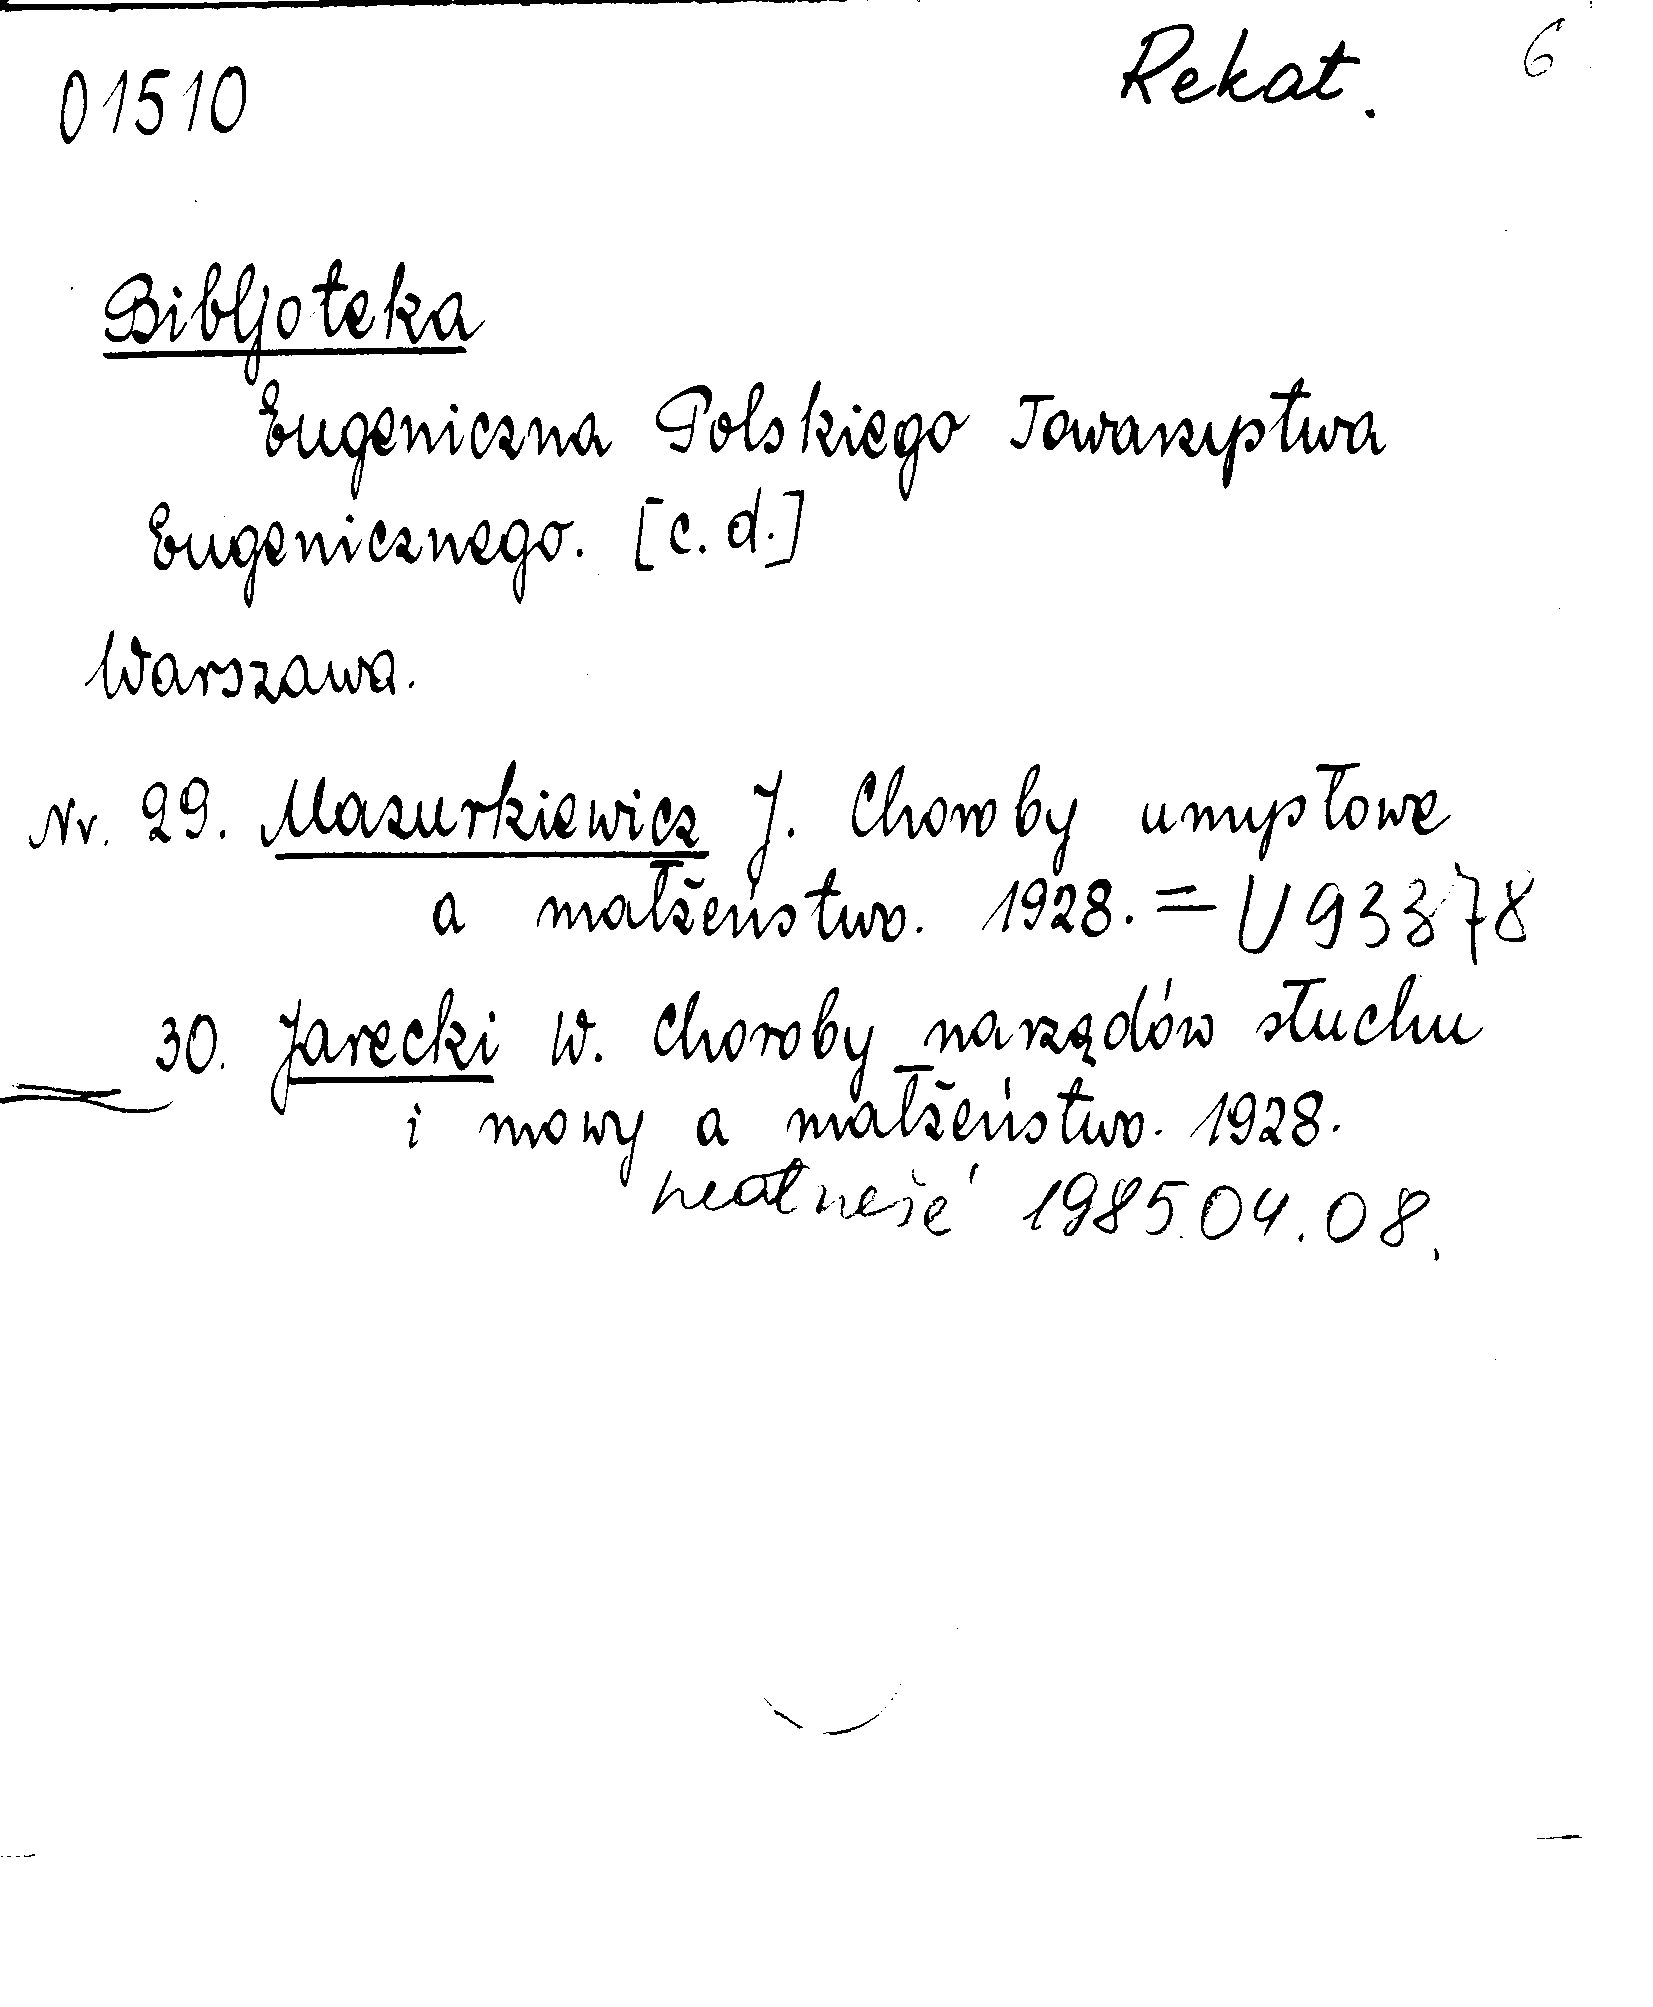 01510 Rekat. 6
Bibljoteka
Eugeniczna Polskiego Towarzystwa
Eugenicznego. [c.d.]
Warszawa.
Nr. 29. Mazurkiewicz J. Choroby umysłowe
a małżeństwo. 1928. = U 93378
30. Jarecki W. Choroby narządów słuchu
i mowy a małżeństwo. 1928.
1985.04.08.